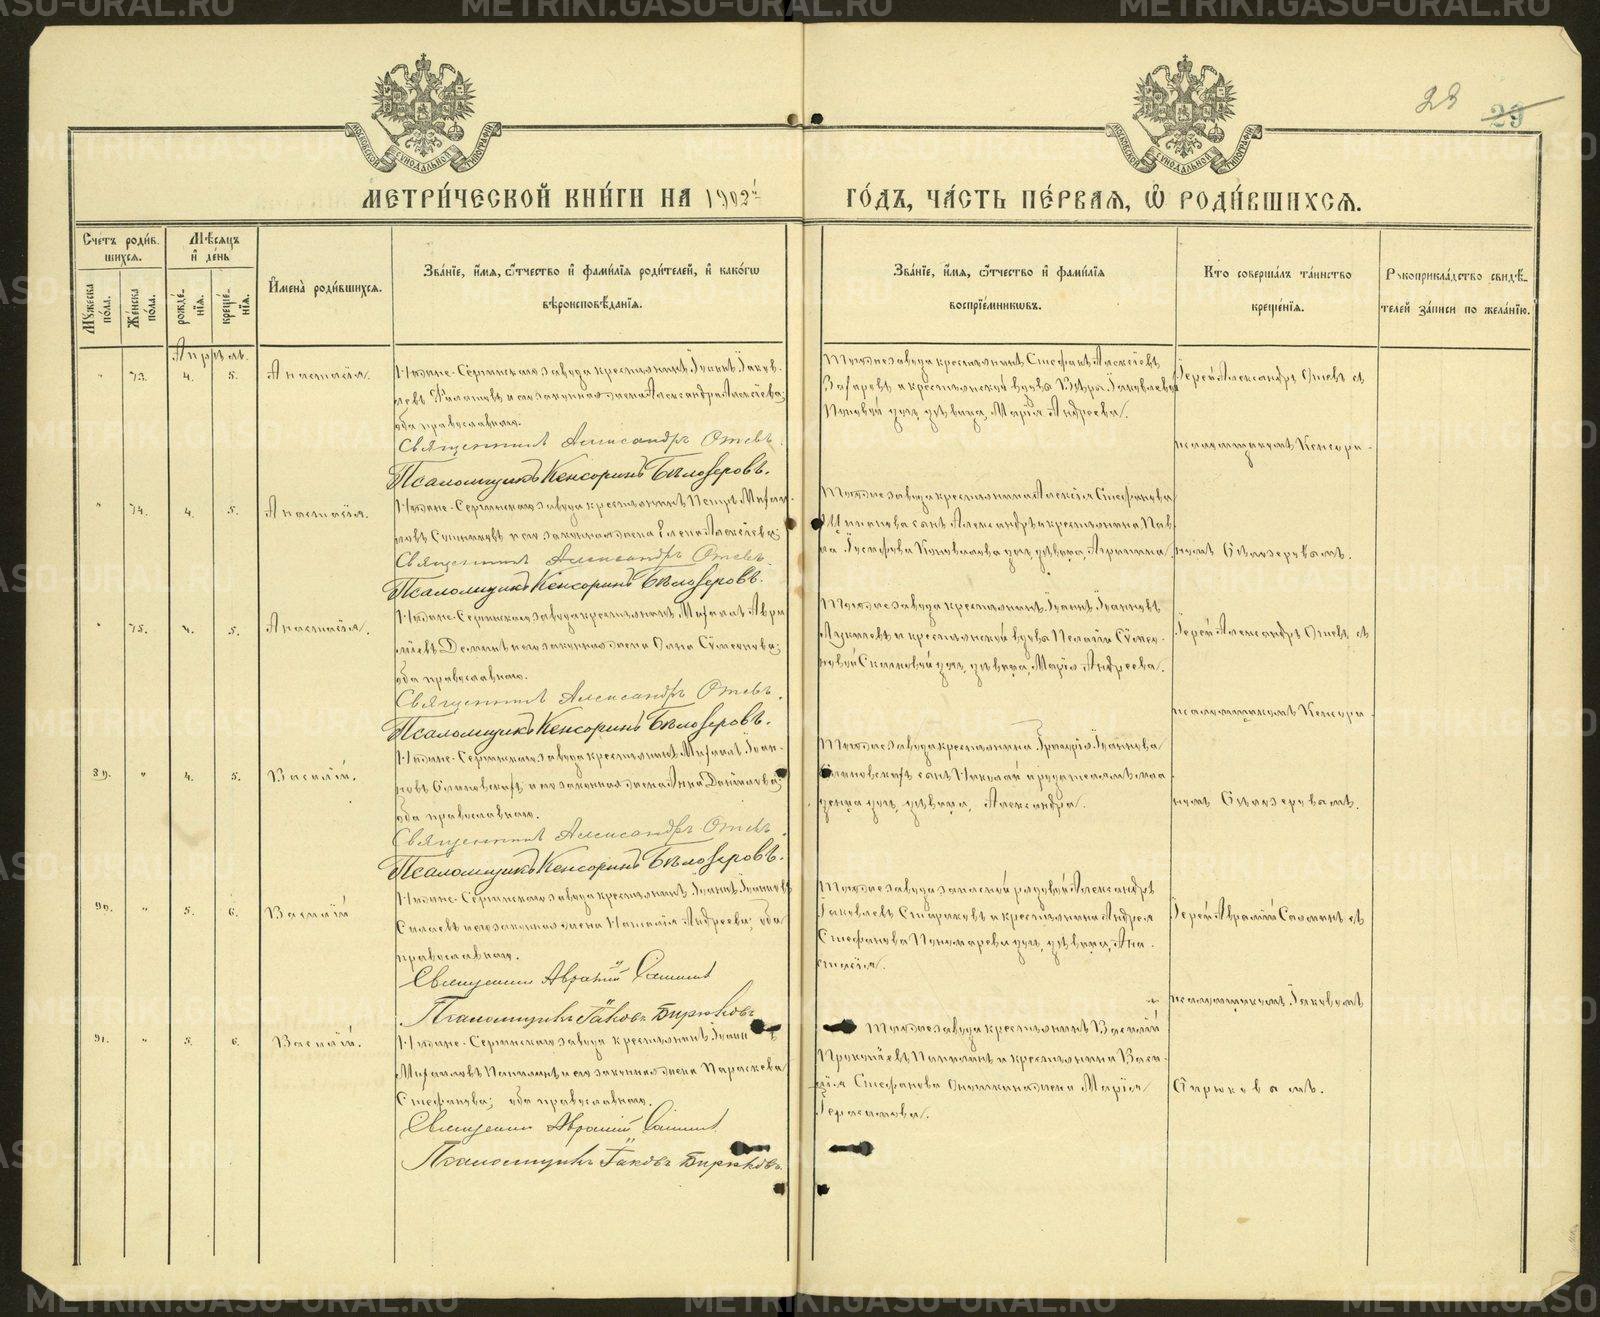 METRIKI.GASO-URAL.RU
23
29
МОСКОВСКОЙ СѴНОДАЛЬНОЙ ТИПОГРАФІИ
МОСКОВСКОЙ СѴНОДАЛЬНОЙ ТИПОГРАФІИ
МЕТРИ́ЧЕСКОЙ КНИ́ГИ НА 1902й ГО́ДЪ, ЧА́СТЬ ПЕ́РВАЯ, Ѡ РОДИ́ВШИХСѦ.
Сче́тъ роди́в-
шихсѧ.
Мꙋ́жеска по́ла.
Же́нска по́ла.
Мѣ́сѧцъ
и҆ де́нь
рожде́нїѧ.
креще́нїѧ.
И҆мена̀ роди́вшихсѧ.
Зва́нїе, и҆́мѧ, ѻ҆́тчество и҆ фами́лїѧ роди́телей, и҆ како́гѡ
вѣроисповѣ́данїѧ.
Зва́нїе, и҆́мѧ, ѻ҆́тчество и҆ фами́лїѧ
воспрїе́мникѡвъ.
Кто̀ соверша́лъ та́инство
креще́нїѧ.
Рꙋкоприкла́дство свидѣ́-
телей за́писи по жела́нїю.
Апрѣль.
" 73. 4. 5. Анастасія.
Нижне-Сергинскаго завода крестьянинъ Іоаннъ Іаков-
левъ и его законная жена Александра Алексіева;
оба православные.
Священникъ Александръ Отевъ.
Псаломщикъ Кенсоринъ Бѣлозеровъ.
Того же завода крестьянинъ Стефанъ Алексіевъ
и крестьянской вдовы Вѣры Іаковлевой
Поповой дочь, дѣвица, Марія Андреева.
Іерей Александръ Отевъ съ
псаломщикомъ Кенсори-
" 74. 4. 5. Анастасія.
Нижне-Сергинскаго завода крестьянинъ Петръ Михаи-
ловъ и его законная жена Елена Алексіева;
Священникъ Александръ Отевъ.
Псаломщикъ Кенсоринъ Бѣлозеровъ.
Того же завода крестьянина Алексія Стефанова
сынъ Александръ и крестьянина Пав-
ла Іосифова Коновалова дочь, дѣвица, Агриппина
номъ Бѣлозеровымъ.
" 75. 4. 5. Анастасія.
Нижне-Сергинскаго завода крестьянинъ Михаилъ
и его законная жена Анна Сѵмеонова;
оба православные.
Священникъ Александръ Отевъ.
Псаломщикъ Кенсоринъ Бѣлозеровъ.
Того же завода крестьянинъ Іоаннъ Іоанновъ
и крестьянской вдовы Пелагіи Сѵмео-
новой дочь, дѣвица, Марія Андреева.
Іерей Александръ Отевъ съ
псаломщикомъ Кенсори-
89. " 4. 5. Василій.
Нижне-Сергинскаго завода крестьянинъ Михаилъ Іоан-
новъ и его законная жена Анна Даніилова;
оба православные.
Священникъ Александръ Отевъ.
Псаломщикъ Кенсоринъ Бѣлозеровъ.
Того же завода крестьянина Григорія Іоаннова
сынъ Николай и родителямъ мла-
денца дочь, дѣвица, Александра.
номъ Бѣлозеровымъ.
90. " 5. 6. Василій
Нижне-Сергинскаго завода крестьянинъ Іоаннъ Іоанновъ
и его законная жена Наталія Андреева; оба
православные.
Священникъ Авраамій
Псаломщикъ Іаковъ Бирюковъ
Того же завода запасной рядовой Александръ
Іаковлевъ Стариковъ и крестьянина Андрея
Стефанова Пономарева дочь, дѣвица, Ана-
стасія.
Іерей Авраамій съ
псаломщикомъ Іаковомъ
91. " 5. 6. Василій.
Нижне-Сергинскаго завода крестьянинъ Іоаннъ
Михаиловъ и его законная жена Параскева
Стефанова; оба православные.
Священникъ Авраамій
Псаломщикъ Іаковъ Бирюковъ
Того же завода крестьянинъ Василій
Прокопіевъ и крестьянина Васи-
лія Стефанова жена Марія
Герасимова.
Бирюковымъ.